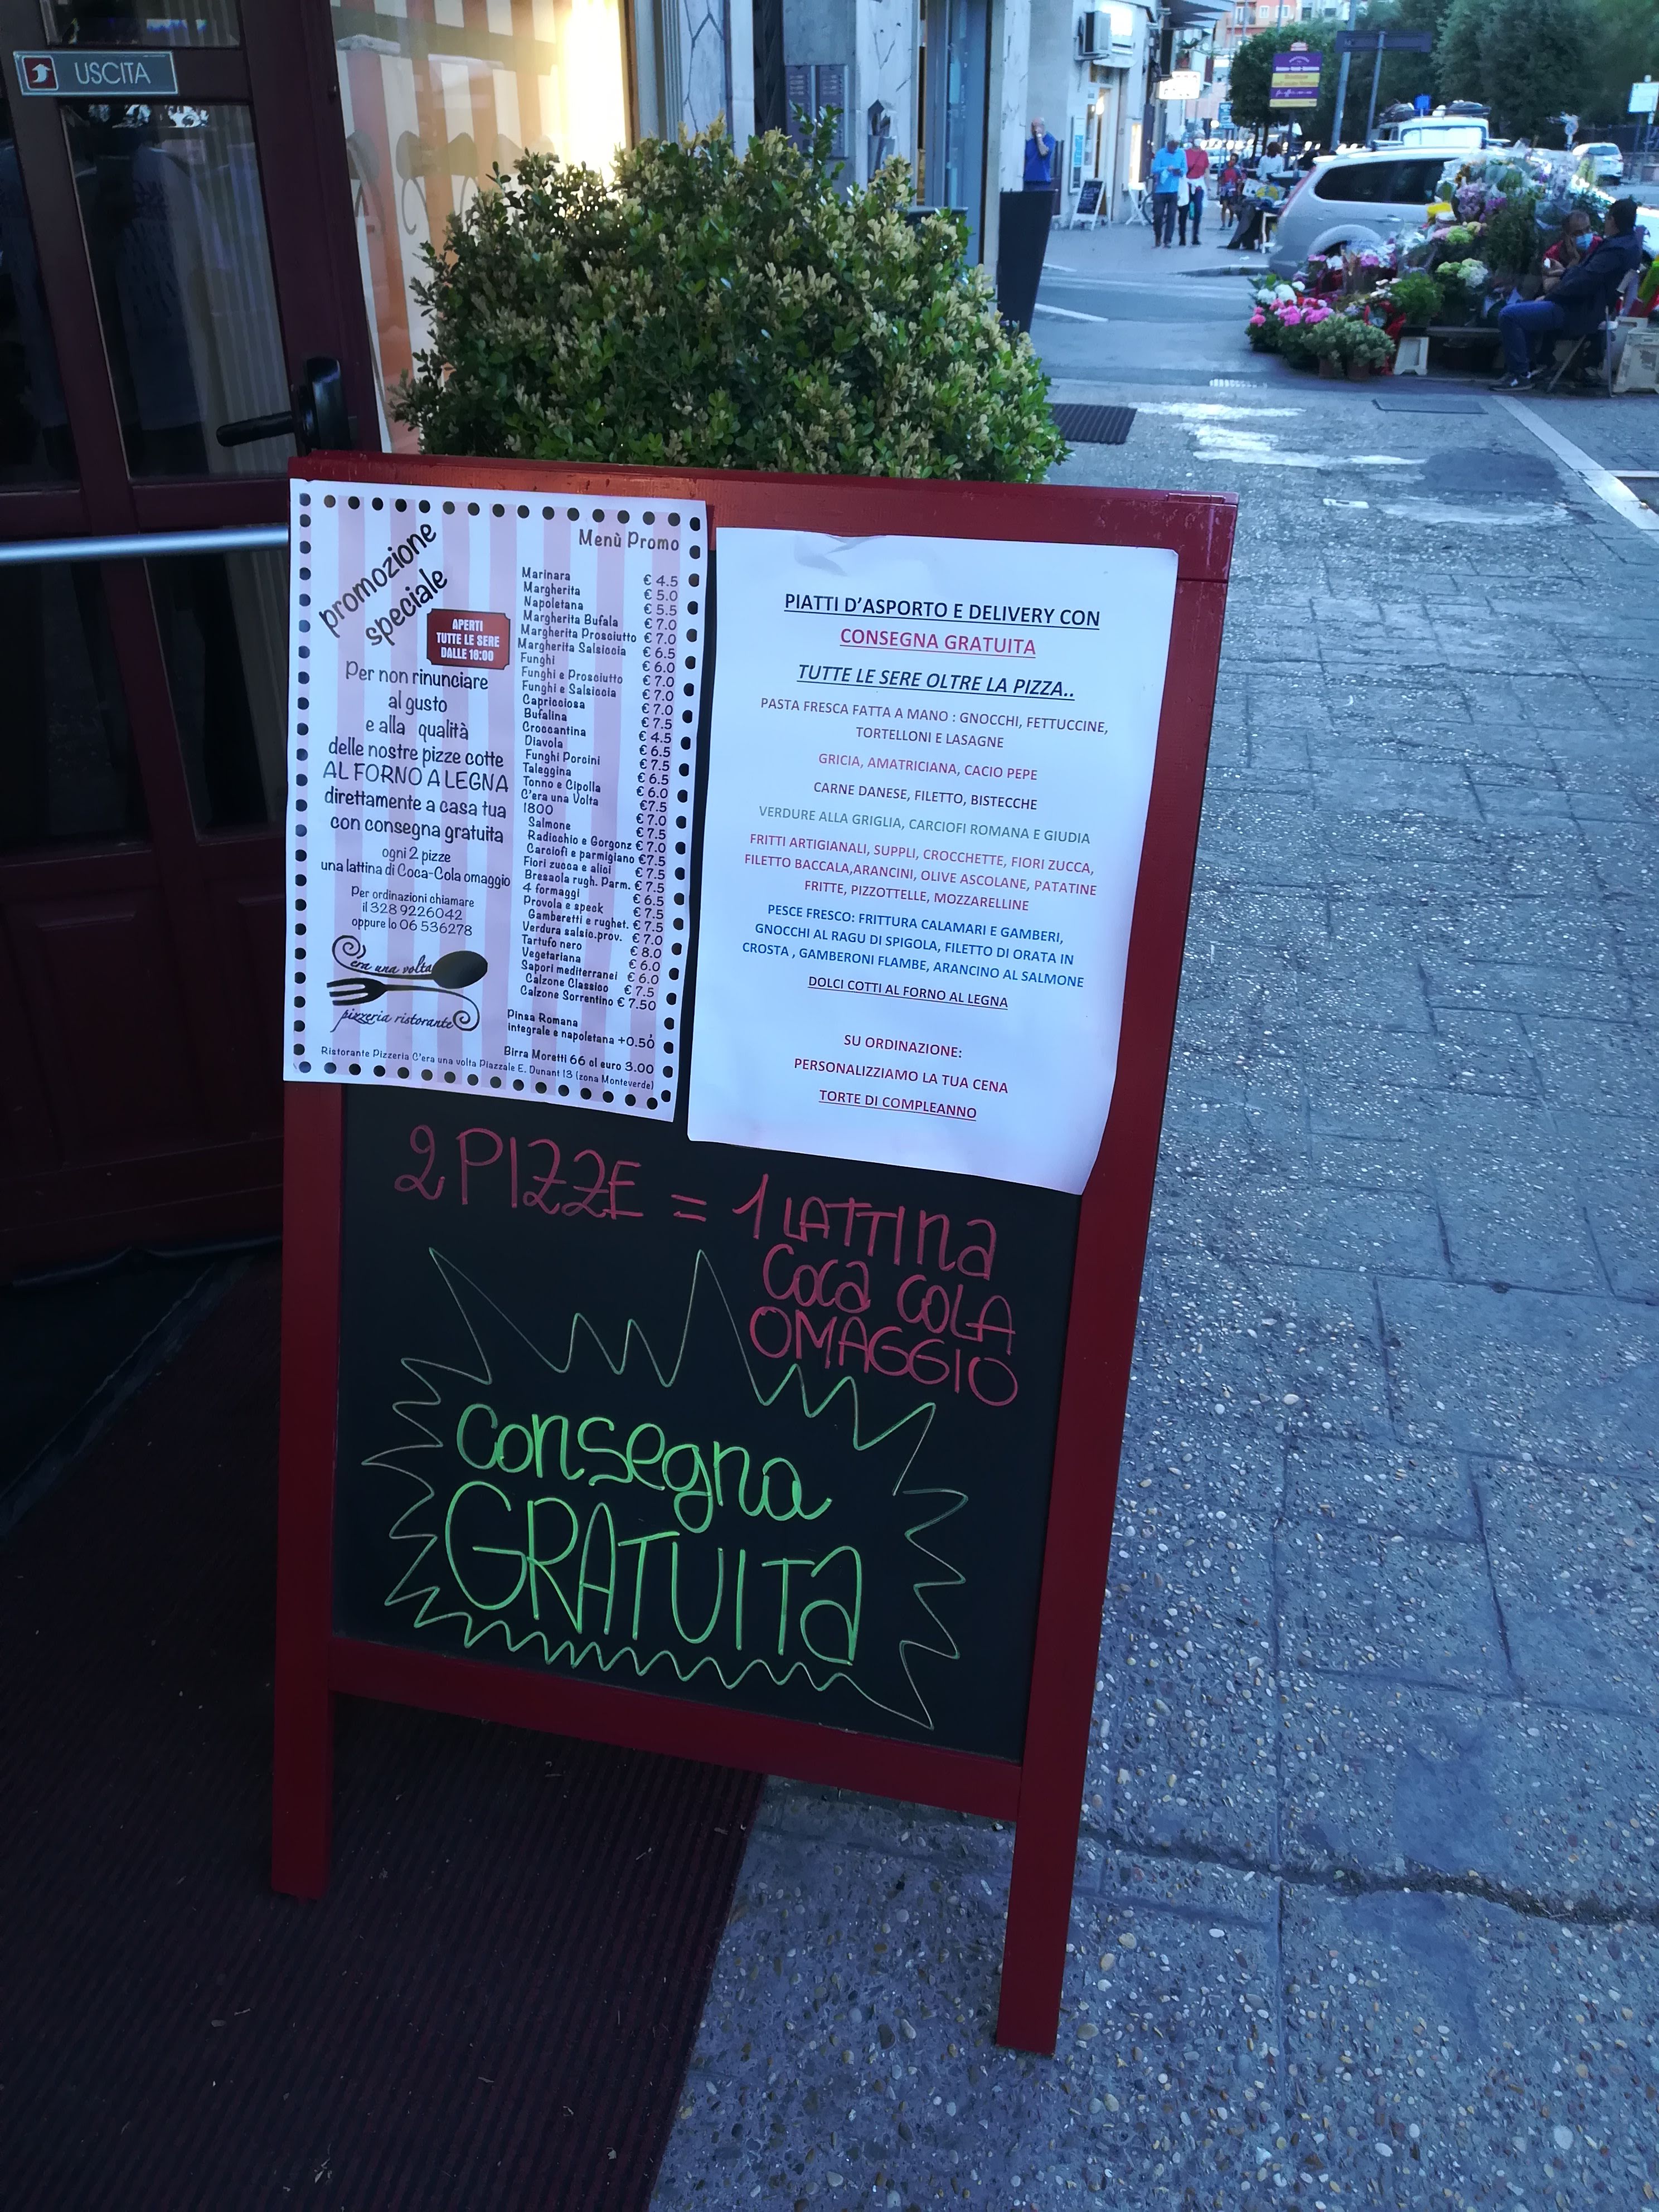 USCITA
promozione
speciale
APERTI
TUTTE LE SERE
DALLE 18:00
Per non rinunciare
al gusto
e alla qualità
delle nostre pizze cotte
AL FORNO A LEGNA
direttamente a casa tua
con consegna gratuita
ogni 2 pizze
una lattina di Coca-Cola omaggio
Per ordinazioni chiamare
il 328 9226042
oppure lo 06 536278
C'era una volta
pizzeria ristorante
Menù Promo
Marinara € 4.5
Margherita € 5.0
Napoletana € 5.5
Margherita Bufala € 7.0
Margherita Prosciutto € 7.0
Margherita Salsiccia € 6.5
Funghi € 6.0
Funghi e Prosciutto € 7.0
Funghi e Salsiccia € 7.0
Capricciosa € 7.0
Bufalina € 7.5
Croccantina € 4.5
Diavola € 6.5
Funghi Porcini € 7.5
Taleggina € 6.5
Tonno e Cipolla € 6.0
C'era una Volta €7.5
1800 € 7.0
Salmone € 7.5
Radicchio e Gorgonz € 7.0
Carciofi e parmigiano €7.5
Fiori zucca e alici € 7.5
Bresaola rugh. Parm. € 7.5
4 formaggi € 6.5
Provola e speck € 7.5
Gamberetti e rughet. € 7.5
Verdura salsic.prov. € 7.0
Tartufo nero € 8.0
Vegetariana € 6.0
Sapori mediterranei € 6.0
Calzone Classico € 7.5
Calzone Sorrentino € 7.50
Pinsa Romana
integrale e napoletana +0.50
Birra Moretti 66 cl euro 3.00
Ristorante Pizzeria C'era una volta Piazzale E. Dunant 13 (zona Monteverde)
PIATTI D'ASPORTO E DELIVERY CON
CONSEGNA GRATUITA
TUTTE LE SERE OLTRE LA PIZZA..
PASTA FRESCA FATTA A MANO : GNOCCHI, FETTUCCINE,
TORTELLONI E LASAGNE
GRICIA, AMATRICIANA, CACIO PEPE
CARNE DANESE, FILETTO, BISTECCHE
VERDURE ALLA GRIGLIA, CARCIOFI ROMANA E GIUDIA
FRITTI ARTIGIANALI, SUPPLI, CROCCHETTE, FIORI ZUCCA,
FILETTO BACCALA,ARANCINI, OLIVE ASCOLANE, PATATINE
FRITTE, PIZZOTTELLE, MOZZARELLINE
PESCE FRESCO: FRITTURA CALAMARI E GAMBERI,
GNOCCHI AL RAGU DI SPIGOLA, FILETTO DI ORATA IN
CROSTA , GAMBERONI FLAMBE, ARANCINO AL SALMONE
DOLCI COTTI AL FORNO AL LEGNA
SU ORDINAZIONE:
PERSONALIZZIAMO LA TUA CENA
TORTE DI COMPLEANNO
2 PIZZE = 1 LATTINA
COCA COLA
OMAGGIO
Consegna
GRATUITA